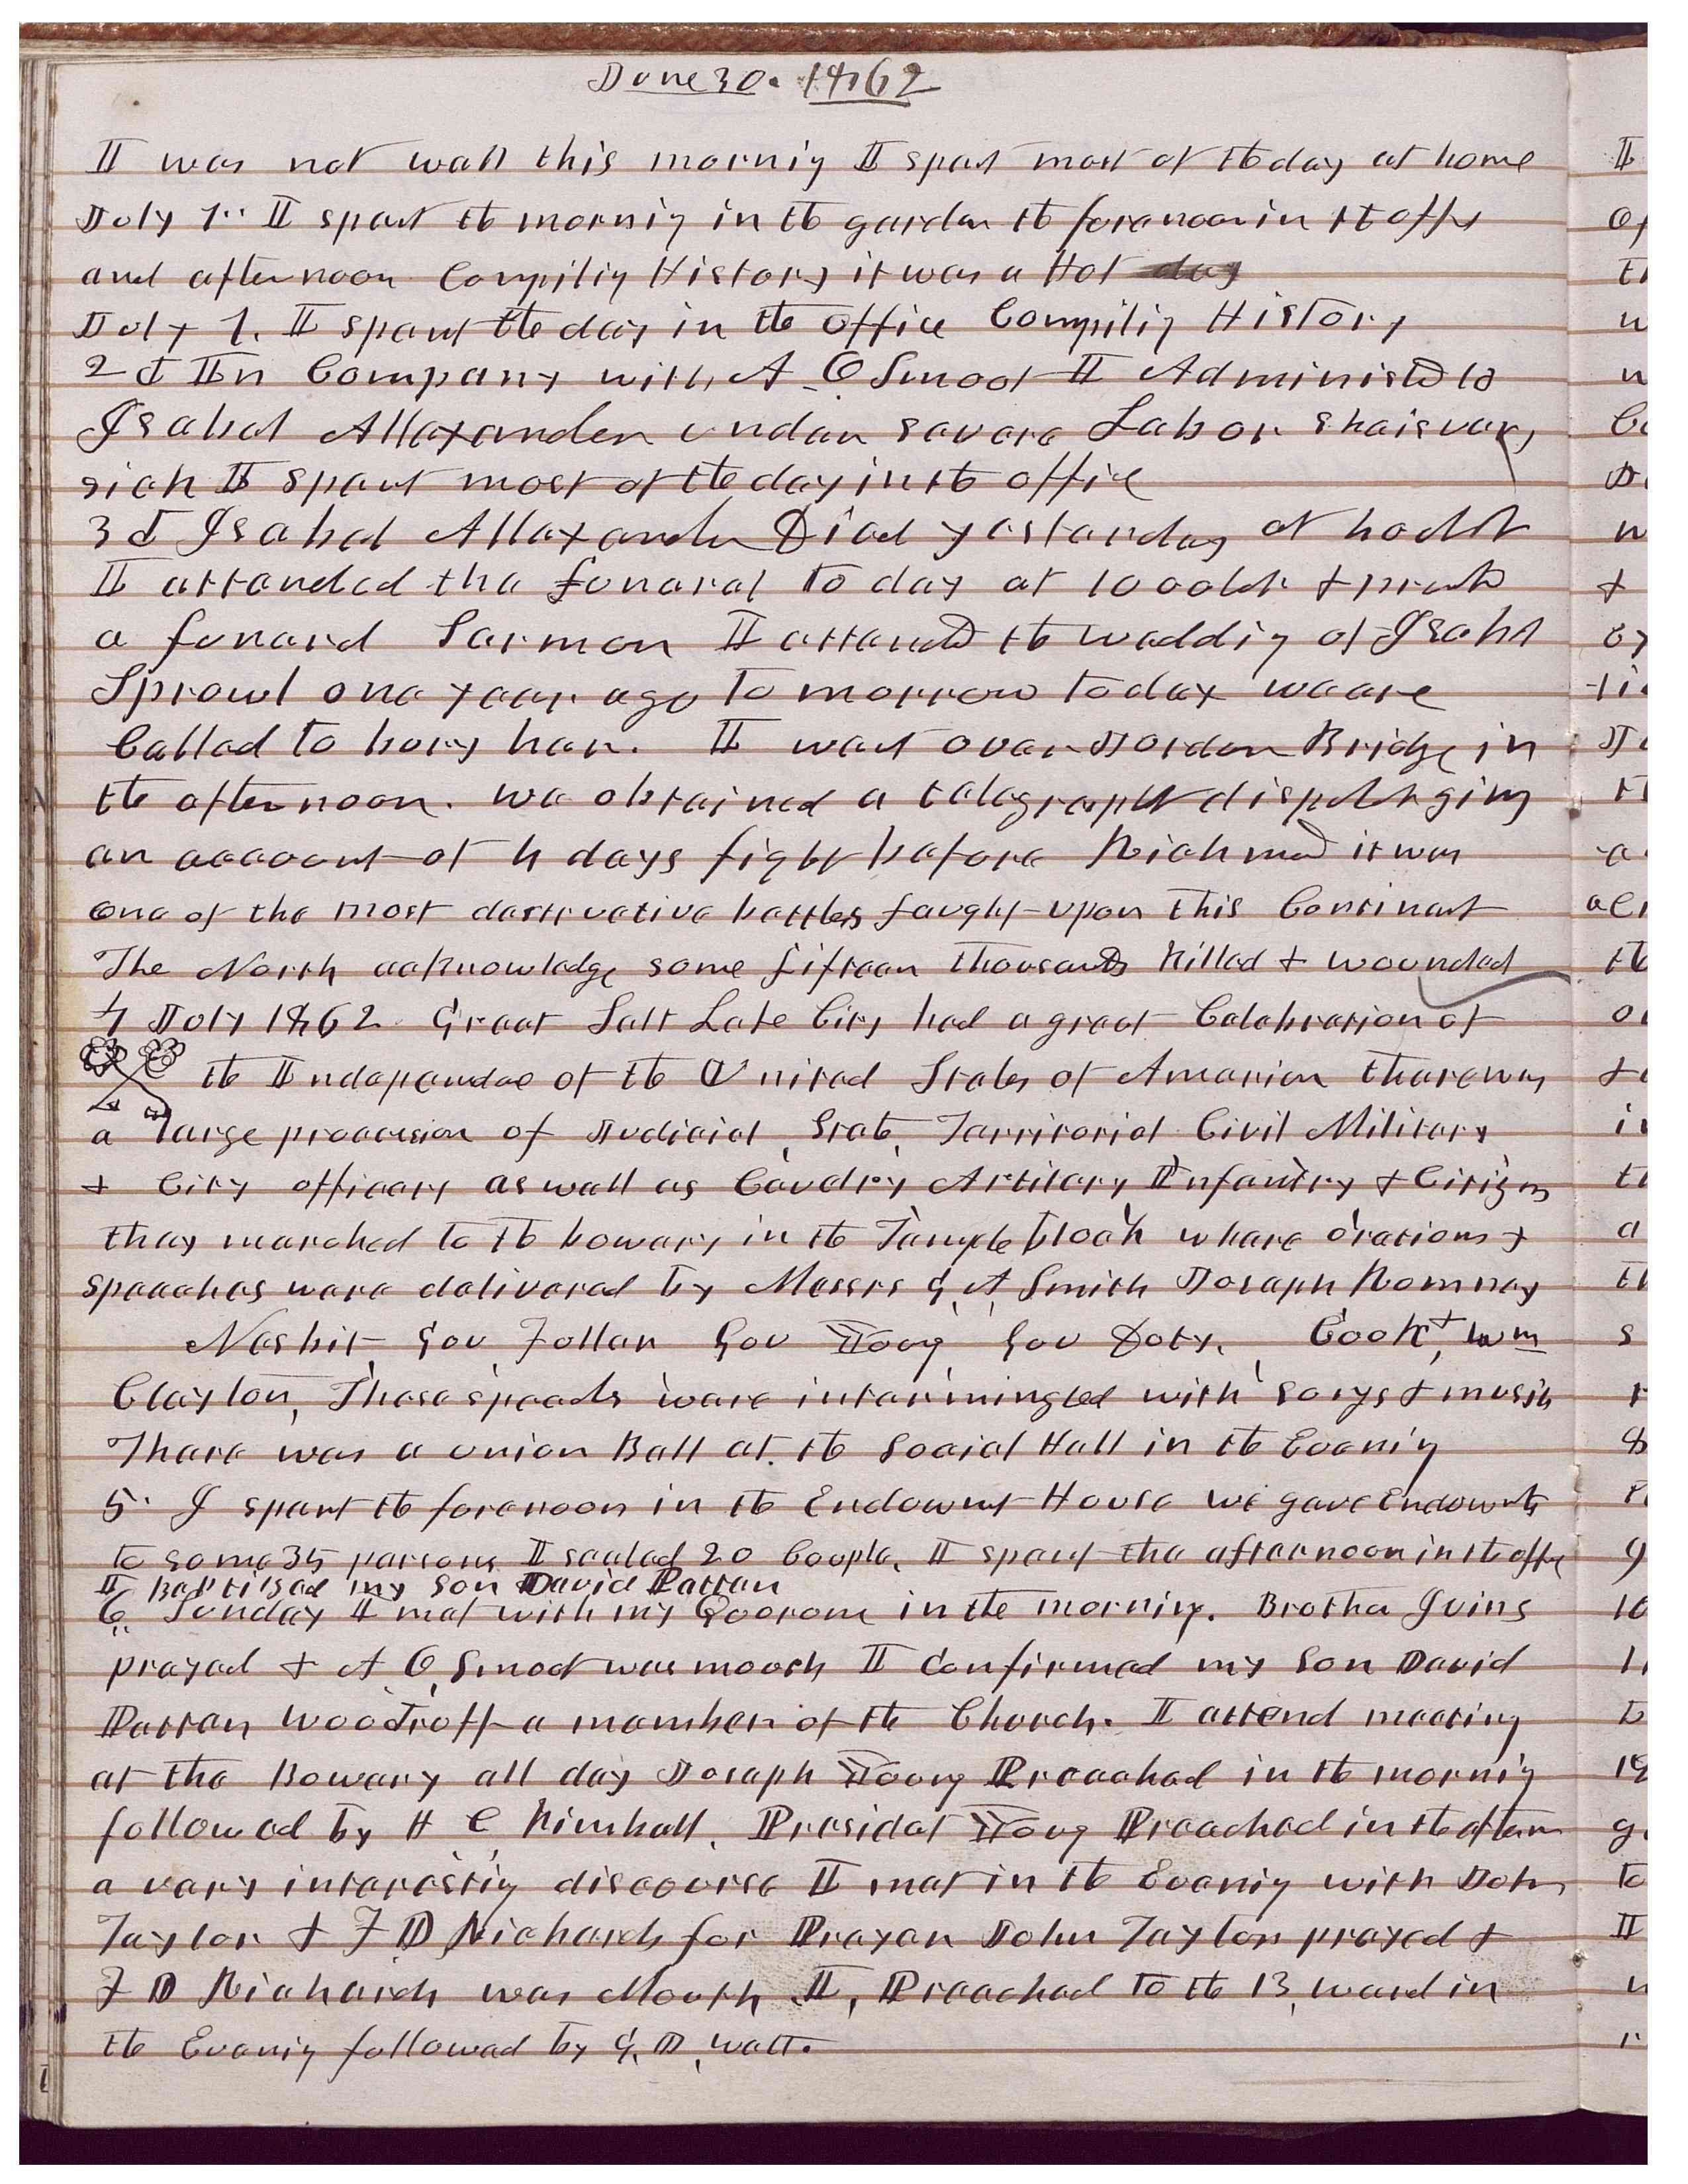 June 30. 1862
I was not well this mornig I spent most of the day at home
July 1.. I spent the mornig in the garden the forenoon in the office
and afternoon Compilig History it was a Hot day
July 1. I spent the day in the office Compilig History
2d In Company with A. O Smoot I Administed to
Isabel Allexander under severe Labor she is very
sick I spent most of the day in the office
3d Isabel Allexander Died yesterday at
I attended the funeral to day at 10 oclok &
a funeral Sermon I attend the wedding of Isabel
Sprowl one year ago to morrow to day we are
Called to bury her. I went over Jordon Bridge in
the afternoon. we obtained a telegraph dispatch givig
an account of 4 days fight before Richmd it was
one of the most destructive battles faught upon this Continent
The North acknowledge some fifteen thousands killed & wounded
4 July 1862 Great Salt Lake City had a great Celebration of
the Independance of the United States of America there was
a large proccession of Judicial, State, Territorial Civil Military
& City officers as well as Cavelry Artilery, Infantry & Citizens
they marched to the bowery in the Temple block where orations &
speeches were delivered by Messrs G, A, Smith Joseph Romney
Nesbit, Gov Fuller Gov Young, Gov Doty, Cook, & Wm
Clayton, These speechs were intermingled with songs & music
There was a union Ball at the Social Hall in the Evenig
5. I spent the forenoon in the Endowmt House we gave Endowmts
to some 35 persons I sealed 20 Couple, I spent the afternoon in the office
I Baptised my son David Patten
6 Sunday I met with my Quorom in the morning. Brother Ivins
prayed & A O, Smoot was mouth I Confirmed my son David
Patten Woodruff a member of the Church. I attend meeting
at the Bowery all day Joseph Young Preached in the mornig
followed by H C, Kimball, Presidet Young Preached in the aftern
a very interestig discourse I met in the Evenig with John
Taylor & F D Richards for Prayer John Taylor prayed &
F D Richards was Mouth, I, Preached to the 13, ward in
the Evenig followed by G, D, Watt.